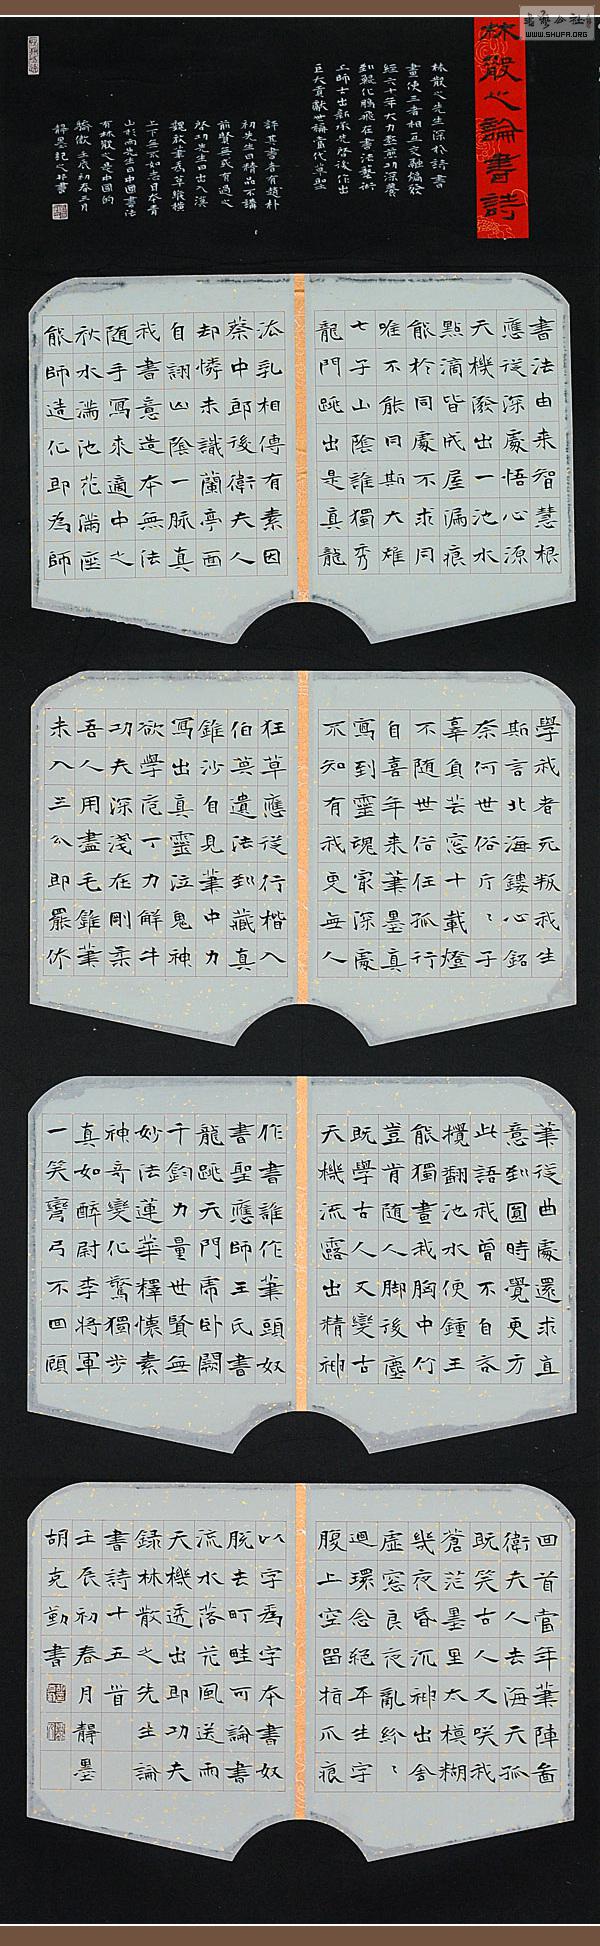 WWW.SHUFA.ORG
林散之論書詩
林散之先生深於詩書
畫使三者相互交融煥發
經六十年大力氣苦功深養
到鯤化鵬飛在書法藝術
上師古出新承先啓後作出
巨大貢獻世稱當代草聖
評其書者有趙朴
初先生曰精品不講
前賢無或有過之
啓功先生曰出入漢
魏放筆為草縱橫
上下無不如志日本青
山杉雨先生曰中國書法
有林散之是中國的
驕傲 壬辰初春三月
靜墨記之并書
書法由来智慧根
應從深處悟心源
天機潑出一池水
點滴皆成屋漏痕
能於同處不求同
唯不能同斯大雄
七子山陰誰獨秀
龍門跳出是真龍
派乳相傳有素因
蔡中郎後衛夫人
却憐未識蘭亭面
自詡山陰一脈真
我書意造本無法
随手寫来適中之
秋水滿池花滿座
能師造化即為師
學我者死叛我生
斯言北海鏤心銘
奈何世俗斤々子
辜負芸窓十載燈
不随世俗任孤行
自喜年来筆墨真
寫到靈魂最深處
不知有我更無人
狂草應從行楷入
伯英遺法到藏真
錐沙自見筆中力
寫出真靈泣鬼神
欲學庖丁力解牛
功夫深淺在剛柔
吾人用盡毛錐筆
未入三分即罷休
筆從曲處還求直
意到圓時覺更方
此語我曾不自吝
攪翻池水便鍾王
能獨畫我胸中竹
豈肯随人脚後塵
既學古人又變古
天機流露出精神
作書誰作筆頭奴
書聖應師王氏書
龍跳天門虎卧闕
千鈞力量世賢無
妙法蓮華釋懷素
神奇變化驚獨步
真如醉尉李將軍
一笑彎弓不回顧
回首當年筆陣啚
衛夫人去海天孤
既笑古人又咲我
蒼茫墨里太模糊
幾夜昏沉神出舍
虛窓良夜亂紛々
迴環念絕平生字
腹上空留指爪痕
以字為字本書奴
脫去町畦可論書
流水落花風送雨
天機透出即功夫
錄林散之先生論
書詩十五首
壬辰初春月靜墨
胡克勤書